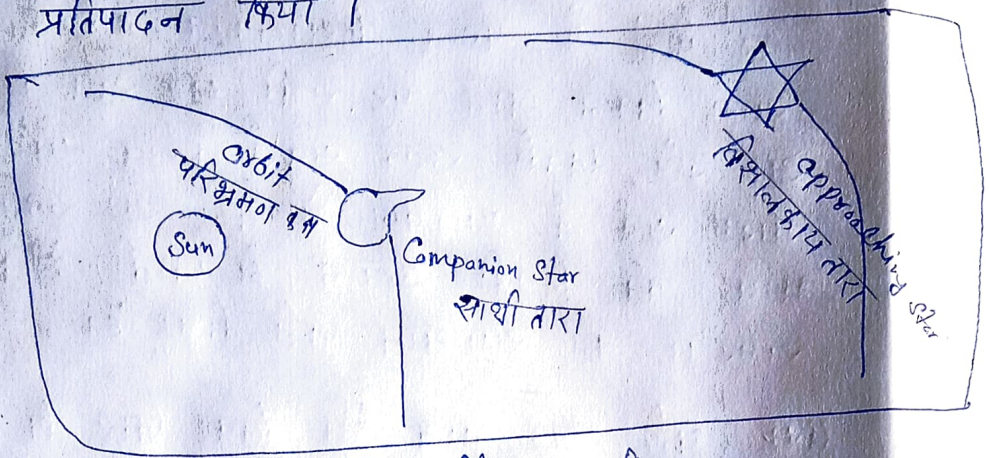 प्रतिपादन किया।
orbit
परिभ्रमण कक्ष
Sun
Companion Star
साथी तारा
approaching star
विशालकाय तारा